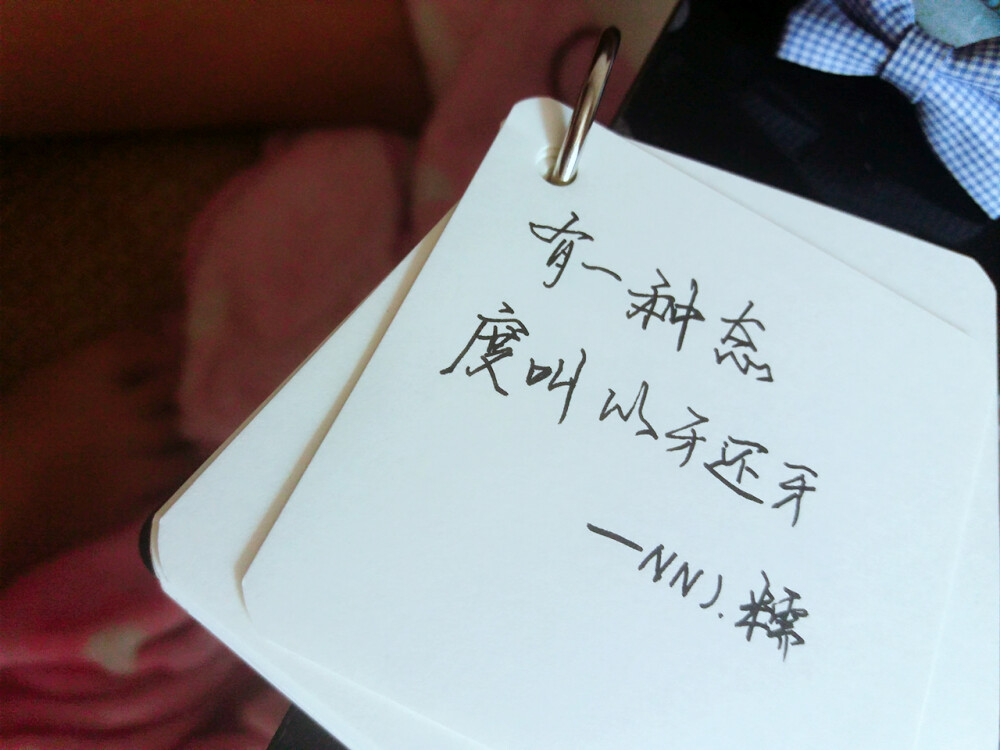 有一种态
度叫以牙还牙
—NN).糯